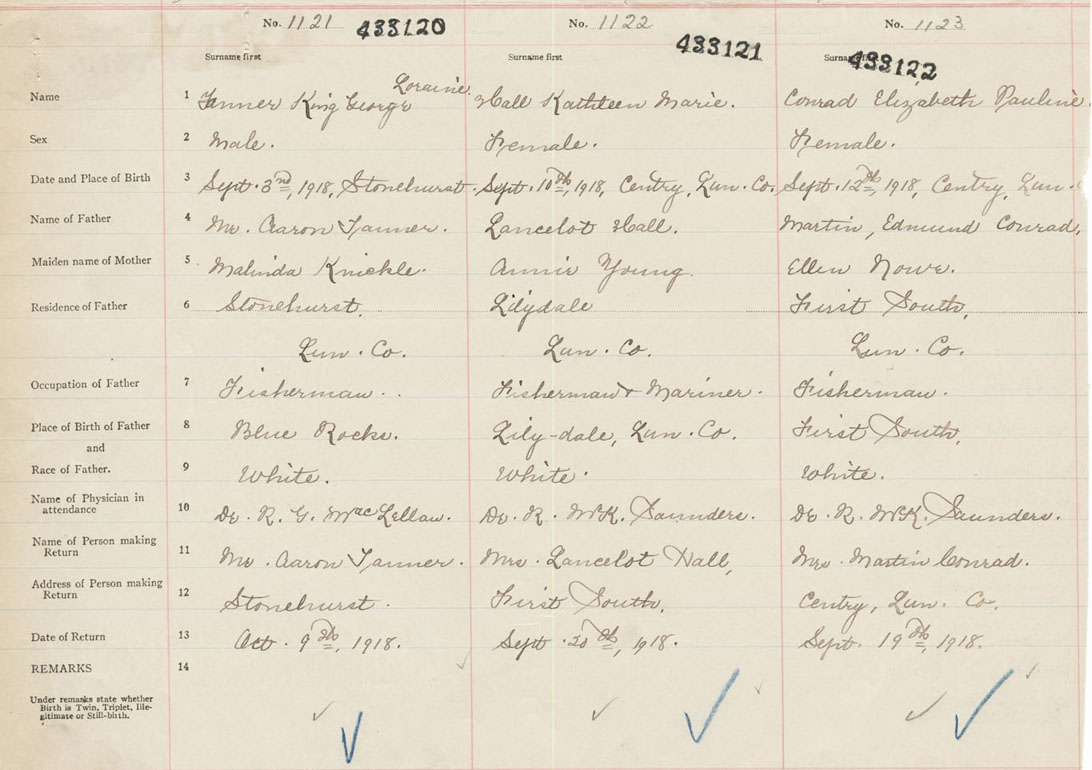 No. 1121 433120 No. 1122 433121 No. 1123 433122
Surname first Surname first Surname first
Name 1 Tanner King George Loraine. Hall Kathleen Marie. Conrad Elizabeth Pauline.
Sex 2 Male. Female. Female.
Date and Place of Birth 3 Sept. 3rd, 1918, Stonehurst. Sept. 10th, 1918, Centry, Lun. Co. Sept. 12th, 1918, Centry, Lun.
Name of Father 4 Mr. Aaron Tanner. Lancelot Hall. Martin, Edmund Conrad.
Maiden name of Mother 5 Malinda Knickle. Annie Young. Ellen Nowe.
Residence of Father 6 Stonehurst, Lilydale First South,
Lun. Co. Lun. Co. Lun. Co.
Occupation of Father 7 Fisherman. Fisherman & Mariner. Fisherman.
Place of Birth of Father 8 Blue Rocks. Lily-dale, Lun. Co. First South,
and
Race of Father. 9 White. White. White.
Name of Physician in
attendance 10 Dr. R. G. MacLellan. Dr. R. McK. Saunders. Dr. R. McK. Saunders.
Name of Person making
Return 11 Mr. Aaron Tanner. Mrs. Lancelot Hall, Mrs. Martin Conrad.
Address of Person making
Return 12 Stonehurst. First South, Centry, Lun. Co.
Date of Return 13 Oct. 9th, 1918. Sept. 20th, 1918. Sept. 19th, 1918.
REMARKS 14
Under remarks state whether
Birth is Twin, Triplet, Ille-
gitimate or Still-birth.